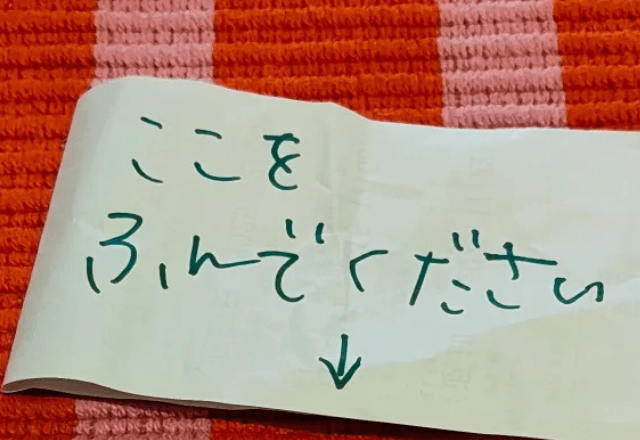 ここを
ふんでください
↓